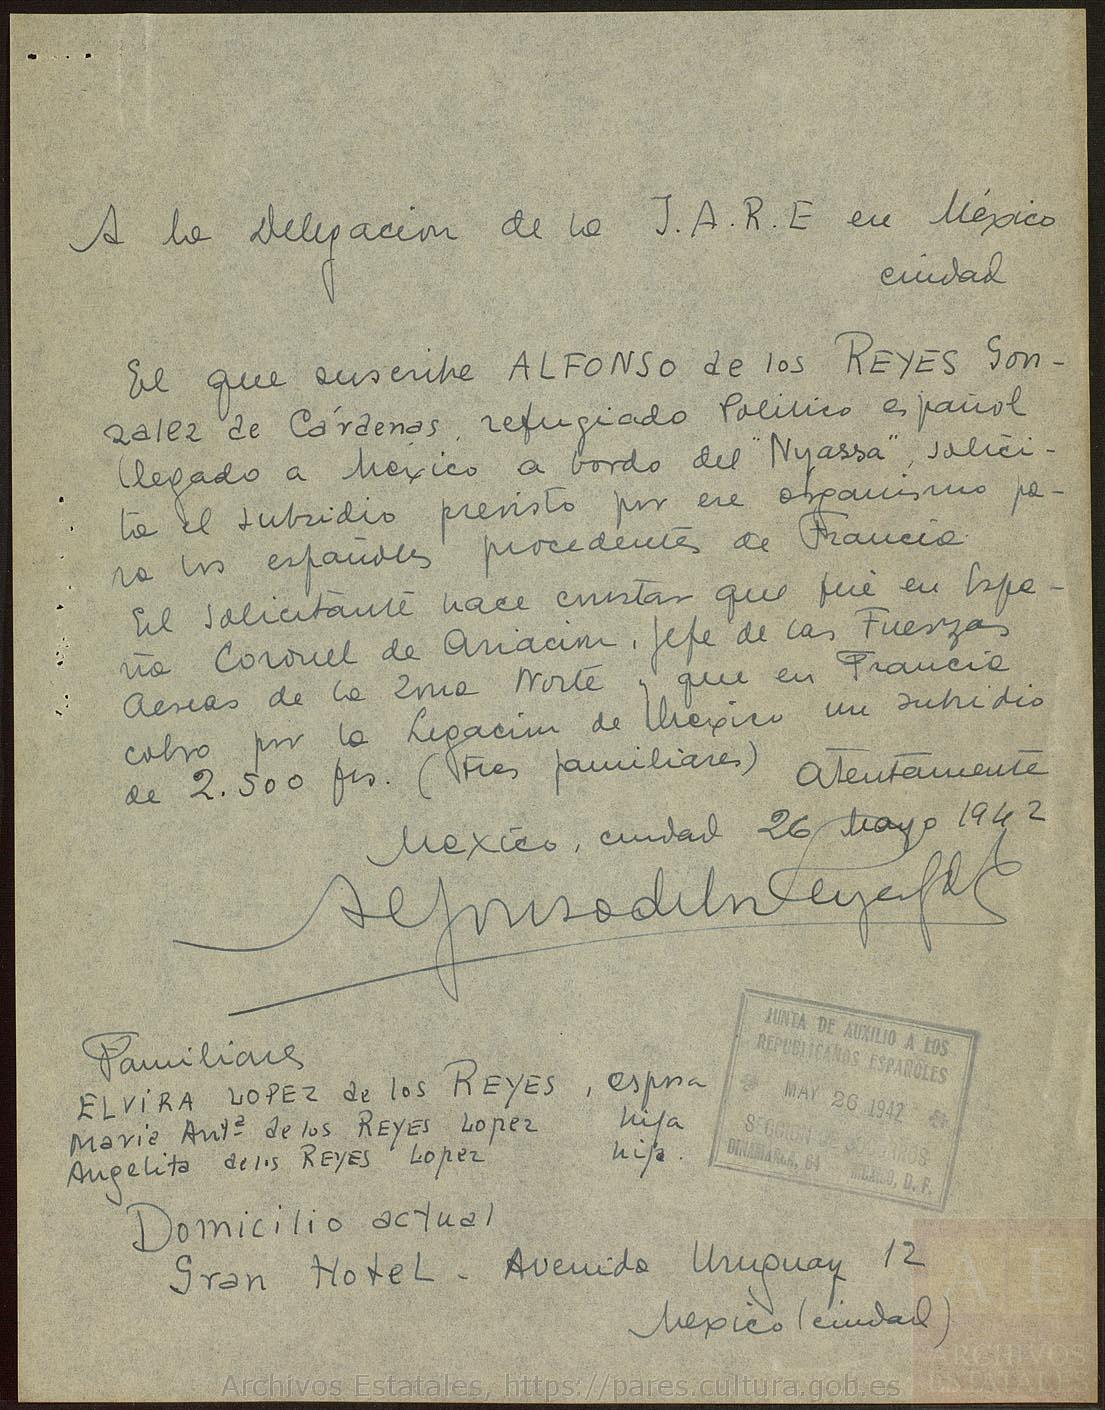 A la Delegación de la J.A.R.E en México
ciudad
El que suscribe ALFONSO de los REYES Gon-
zalez de Cárdenas, refugiado Politico español
llegado a Mexico a bordo del "Nyassa", solici-
ta el subsidio previsto por ese organismo pa-
ra los españoles procedentes de Francia.
El solicitante hace constar que fué en Espa-
ña Coronel de Aviacion, Jefe de las Fuerzas
Aereas de la Zona Norte y que en Francia
cobro por la Legacion de Mexico un subsidio
de 2.500 frs. (tres familiares) Atentamente
Mexico, ciudad 26 Mayo 1942
Alfonso de los Reyes G de C
Familiares
ELVIRA LOPEZ de los REYES, esposa
Maria Antª de los REYES Lopez hija
Angelita de los REYES Lopez hija.
JUNTA DE AUXILIO A LOS
REPUBLICANOS ESPAÑOLES
MAY 26 1942
SECCION DE SOCORROS
DINAMARCA, 64 MEXICO, D. F.
Domicilio actual
Gran Hotel - Avenida Uruguay 12
Mexico (ciudad)
A E
ARCHIVOS
ESTATALES
Archivos Estatales, https://pares.cultura.gob.es